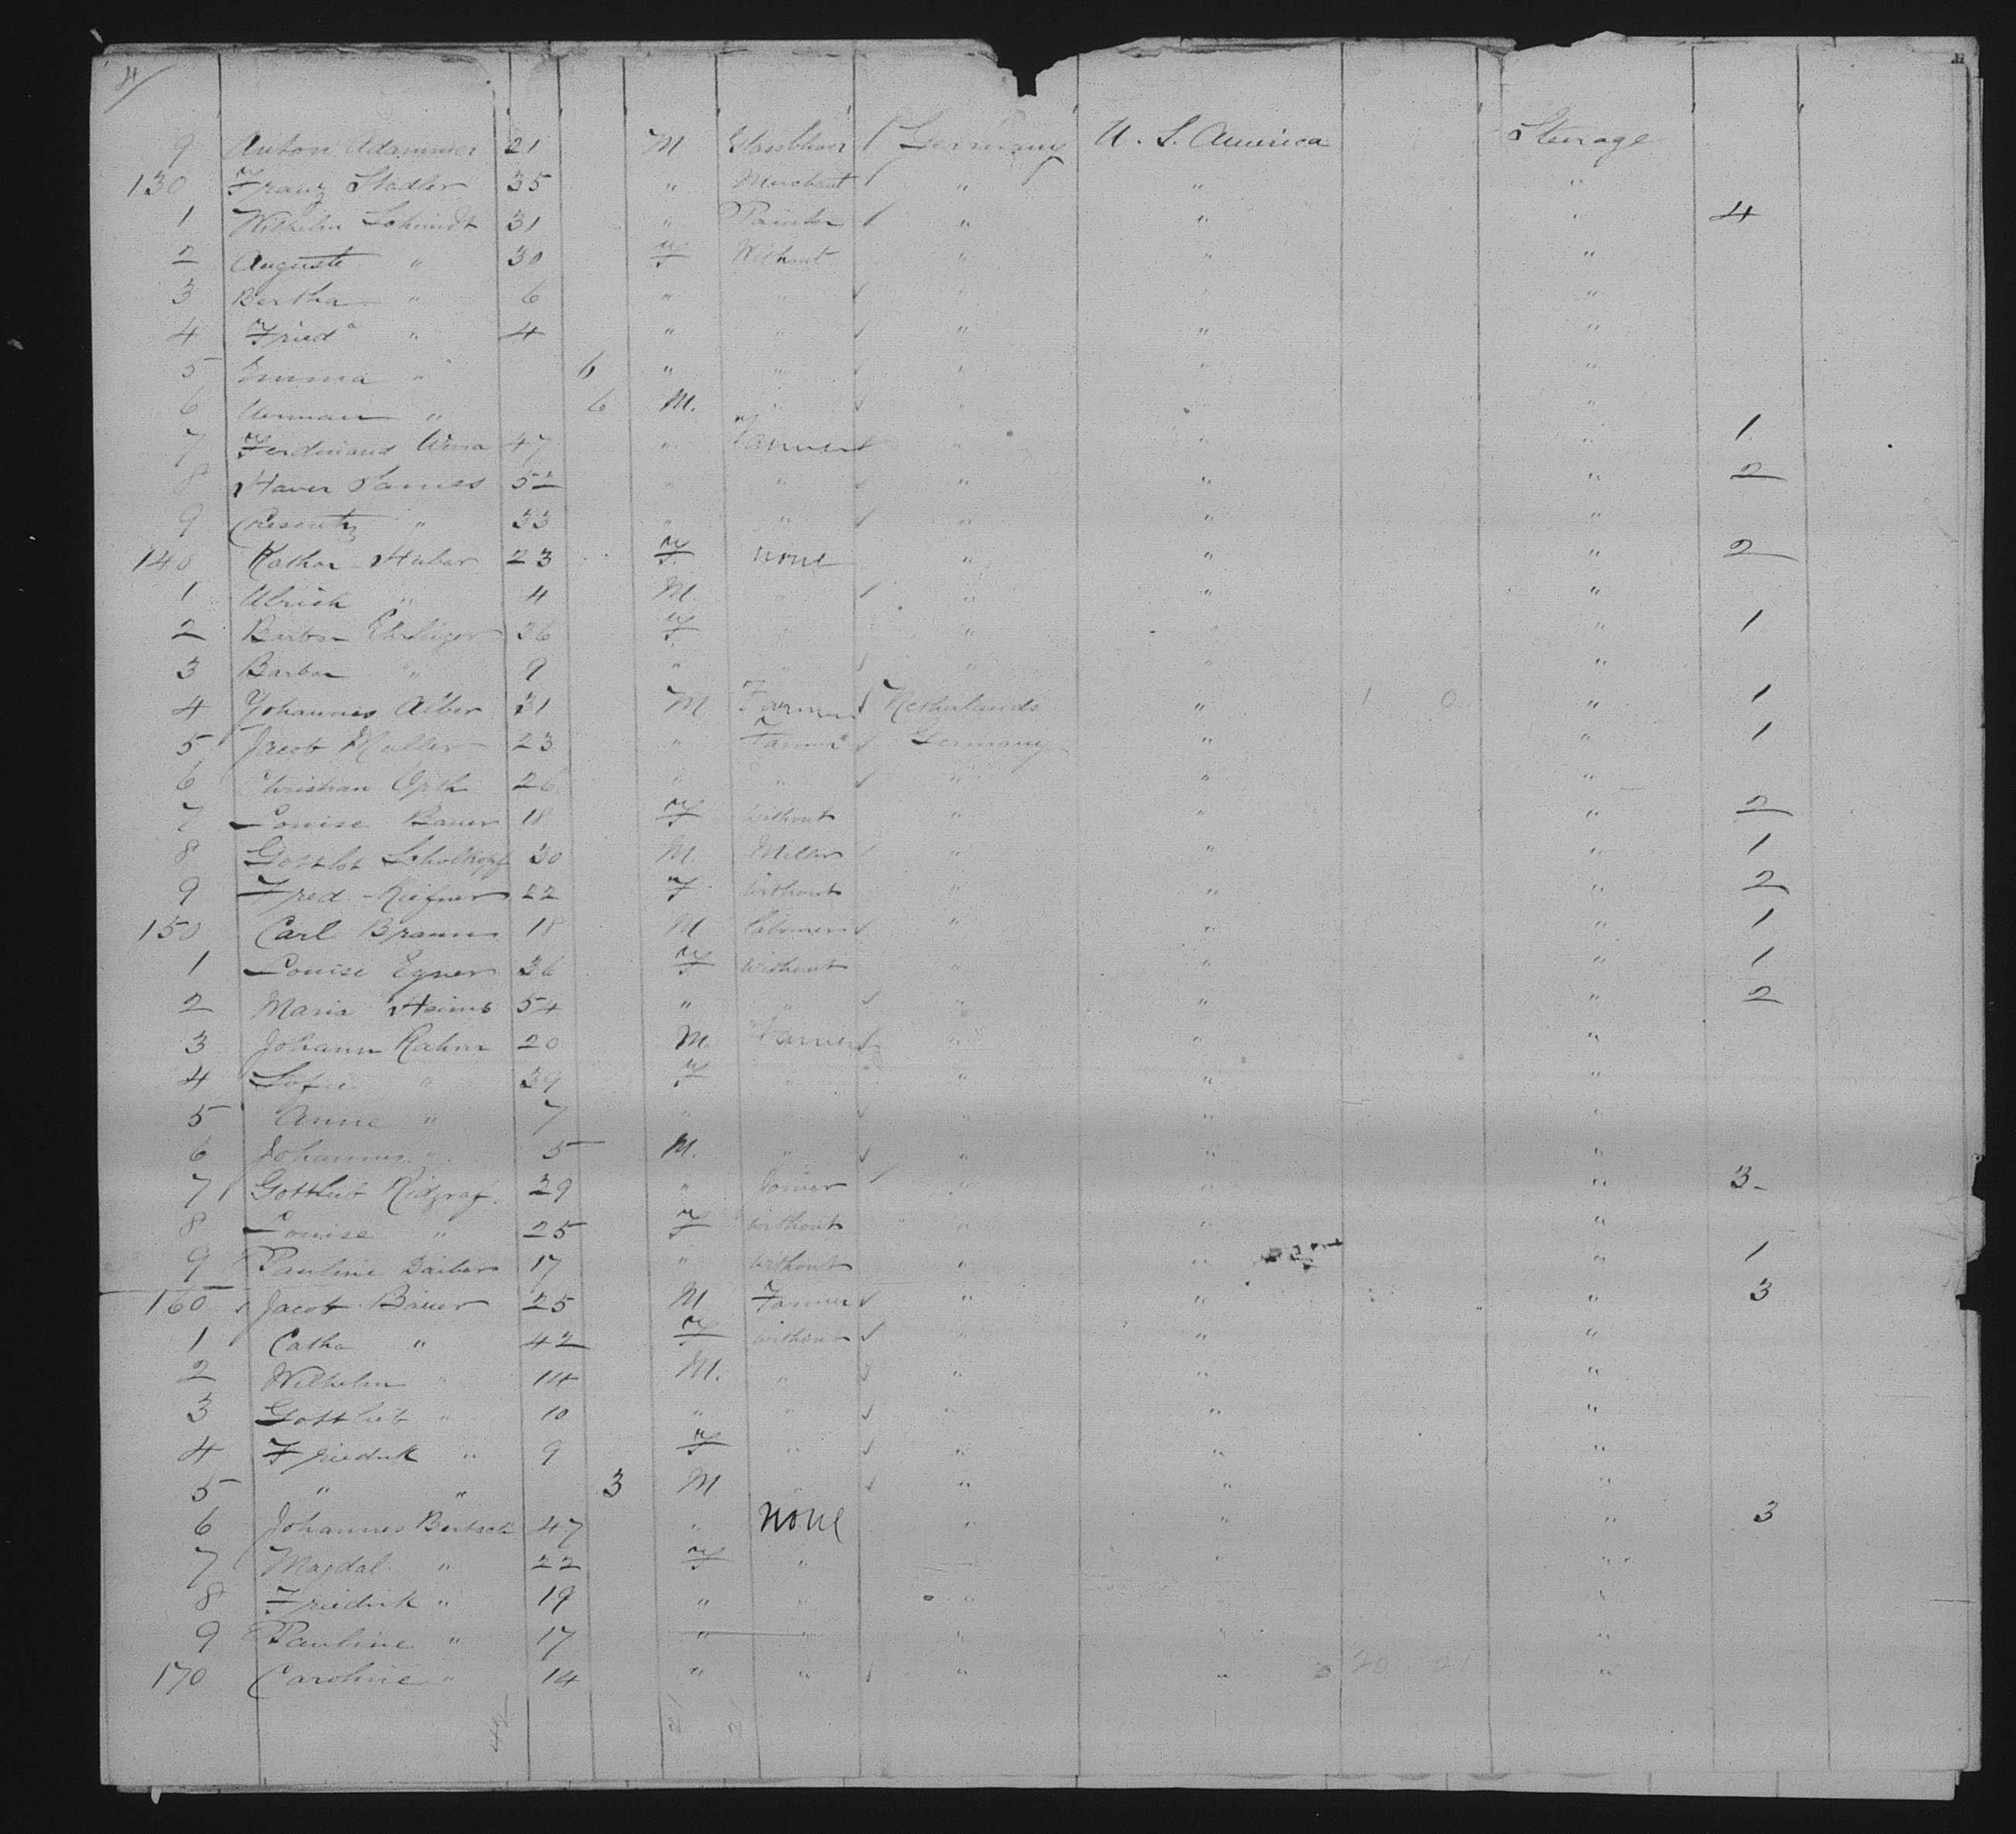 4/
9 Anton Adammer 21 M Glassblower / Germany U. S. America Steerage
130 Franz Stadler 35 " Merchant / " " "
1 Wilhelm Schmidt 31 " Painter / " " " 4
2 Auguste " 30 F Without " " "
3 Bertha " 6 " " / " " "
4 Fried " 4 " " / " " "
5 Emma " 6 " " / " " "
6 Herman " 6 M. " / " " "
7 Ferdinand 47 " Farmer / " " " 1
8 52 " " / " " " 2
9 33 " " / " " "
140 Kathar Huber 23 F none " " " 2
1 Ulrich " 4 M " / " " "
2 Barba Ehslinger 36 F " " " " 1
3 Barbar " 9 " " / " " "
4 Johannes Alber 31 M Farmer / Netherlands " 1 0 " 1
5 Jacob Muller 23 " Farmer / Germany " " 1
6 Christian 26 " " / " " "
7 Louise Bauer 18 F without " " " 2
8 Gottlob Scholkopf 30 M. Miller / " " " 1
9 Fred. Kiefner 22 F without " " " 2
150 Carl Braun 18 M Labourer / " " " 1
1 Louise Egner 36 F without " " " 1
2 Maria Heims 54 " " / " " " 2
3 Johann Rahm 20 M Farmer / " " "
4 Sofie " 39 F " " " "
5 Anne " 7 " " / " " "
6 Johannes " 5 M. " / " " "
7 Gottlieb 29 " / " " " 3
8 Louise " 25 F without " " "
9 Pauline Daiber 17 " without " " " 1
160 Jacob Bauer 25 M Farmer / " " " 3
1 Catha " 42 F without / " " "
2 Wilhelm " 14 M. " / " " "
3 Gottlieb " 10 " " / " " "
4 Friedrik " 9 F " / " " "
5 " " 3 M " / " " "
6 Johannes Bertsch 47 " none " " " 3
7 Magdal. " 22 F " " " "
8 Friedrik " 19 " " " " "
9 Pauline " 17 " " " " "
170 Caroline " 14 " " / " " 20 21 "
42 21 21